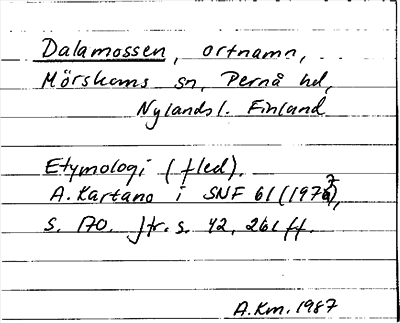 Dalamossen, ortnamn,
Mörskoms sn, Pernå hd,
Nylandsl. Finland
Etymologi (fled).
A. Kartano i SNF 61 (1972),
s. 170. Jfr. s. 42, 261 ff.
A.Km. 1987